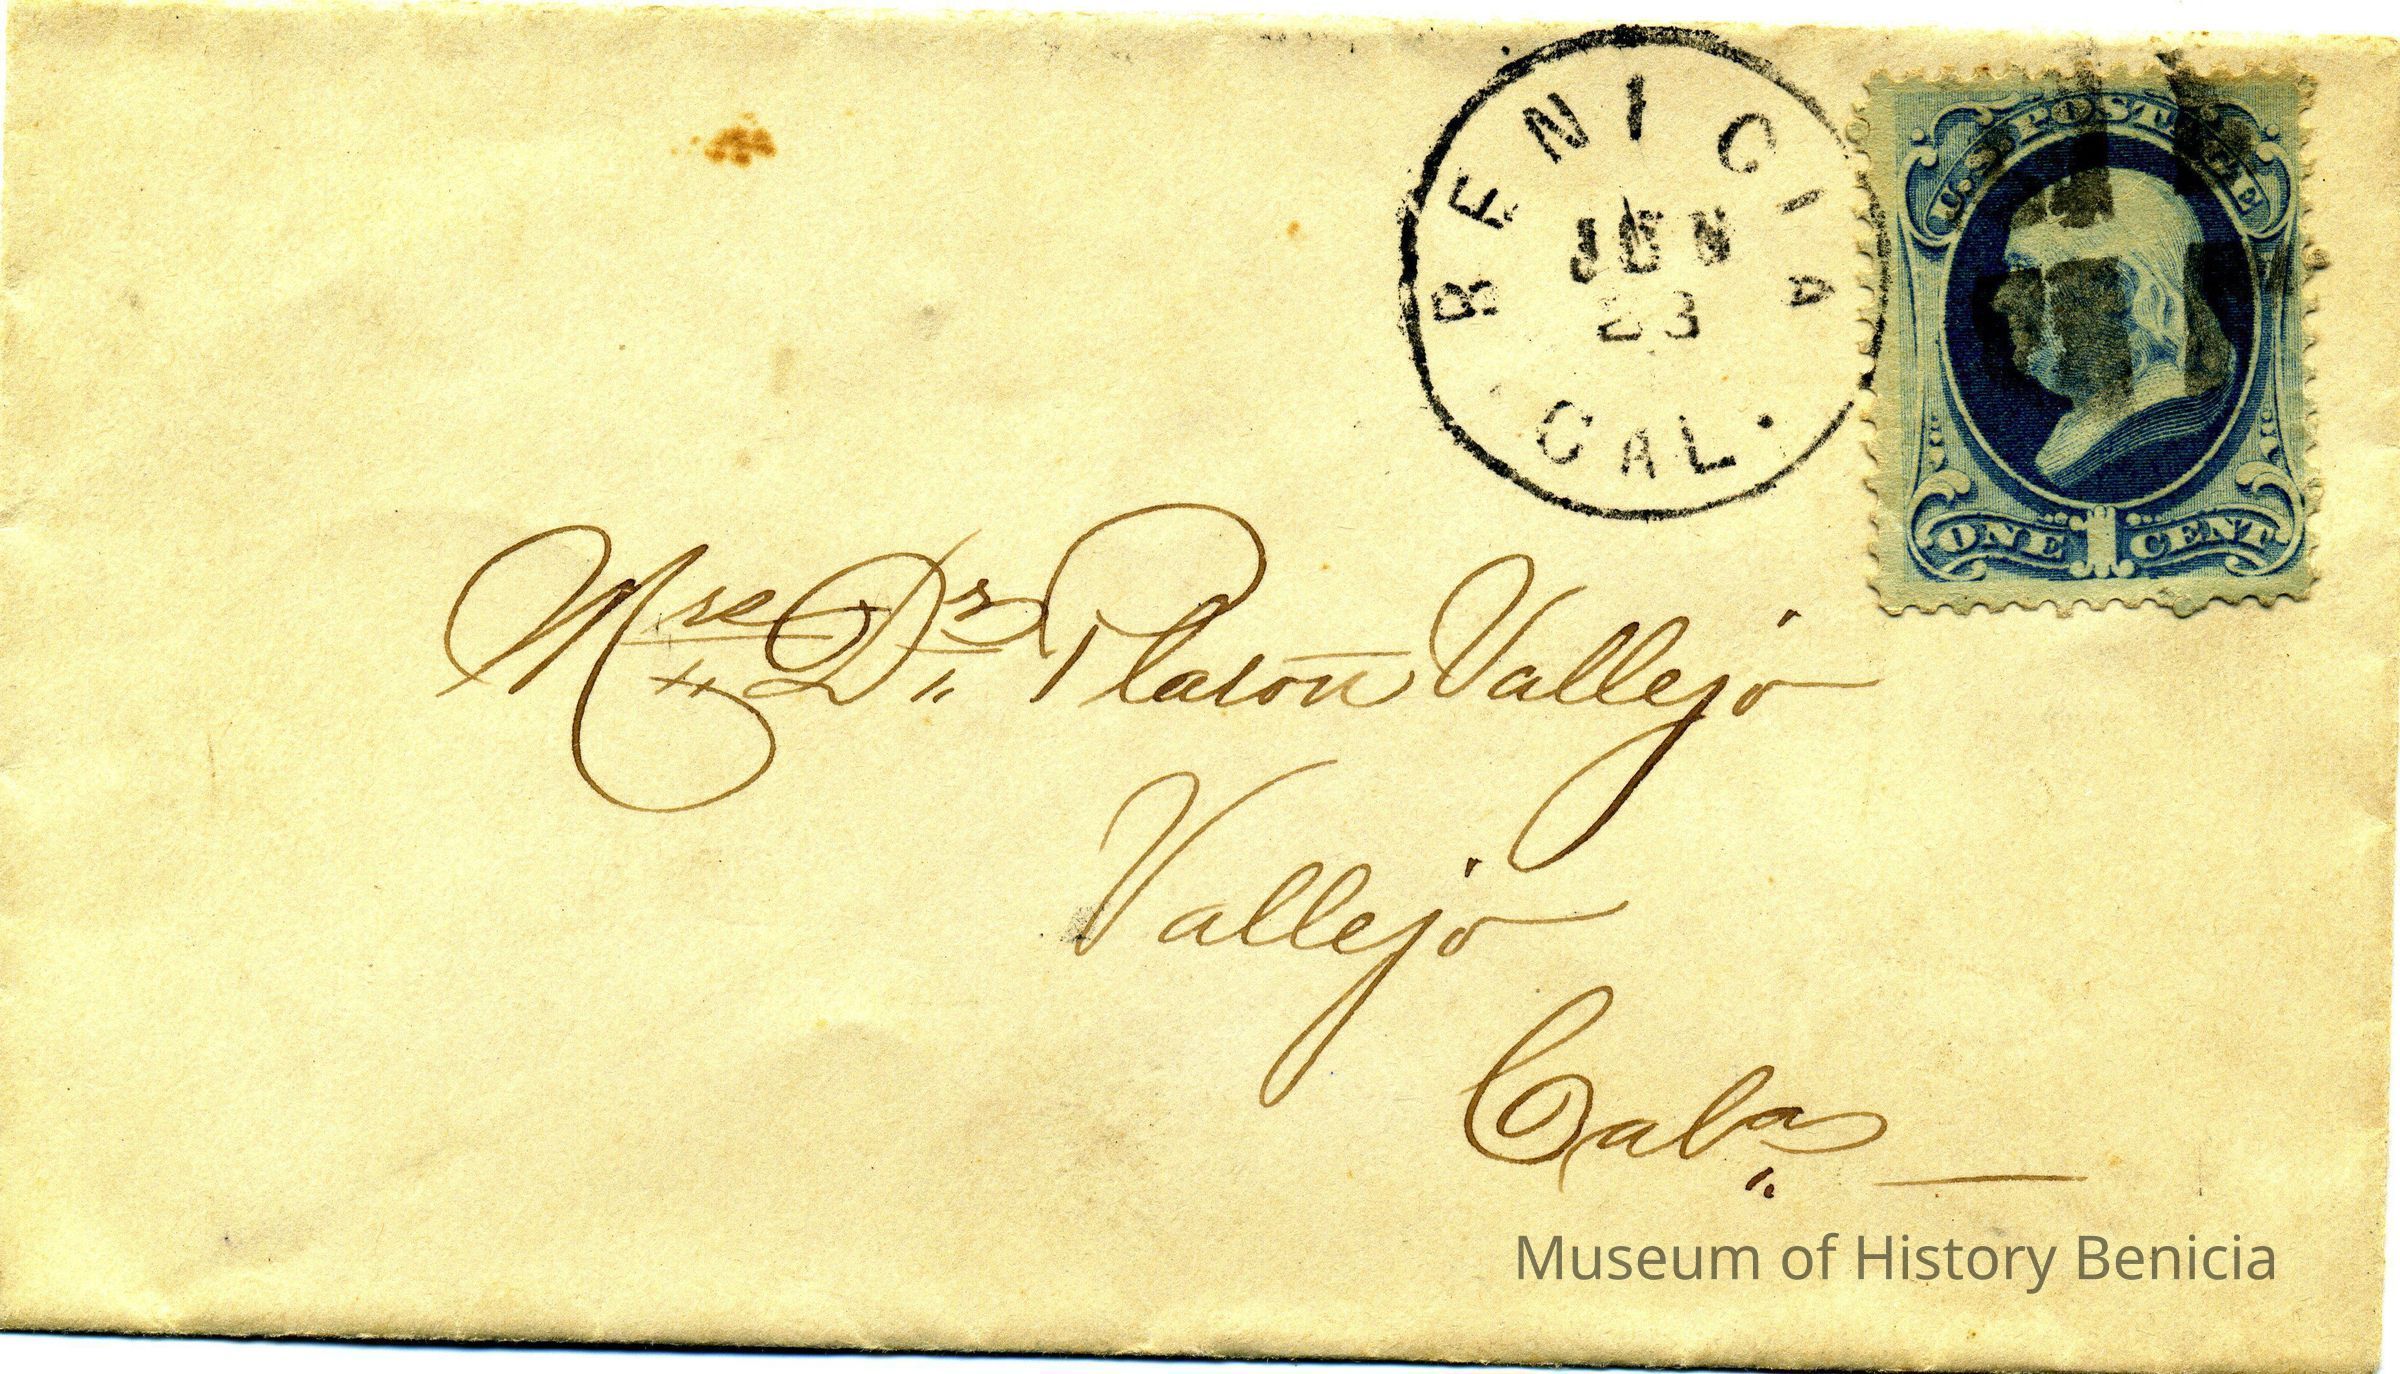 BENICIA
JUN
23
CAL.
U.S. POSTAGE
ONE 1 CENT
Mrs Dr Platon Vallejo
Vallejo
Cala
Museum of History Benicia